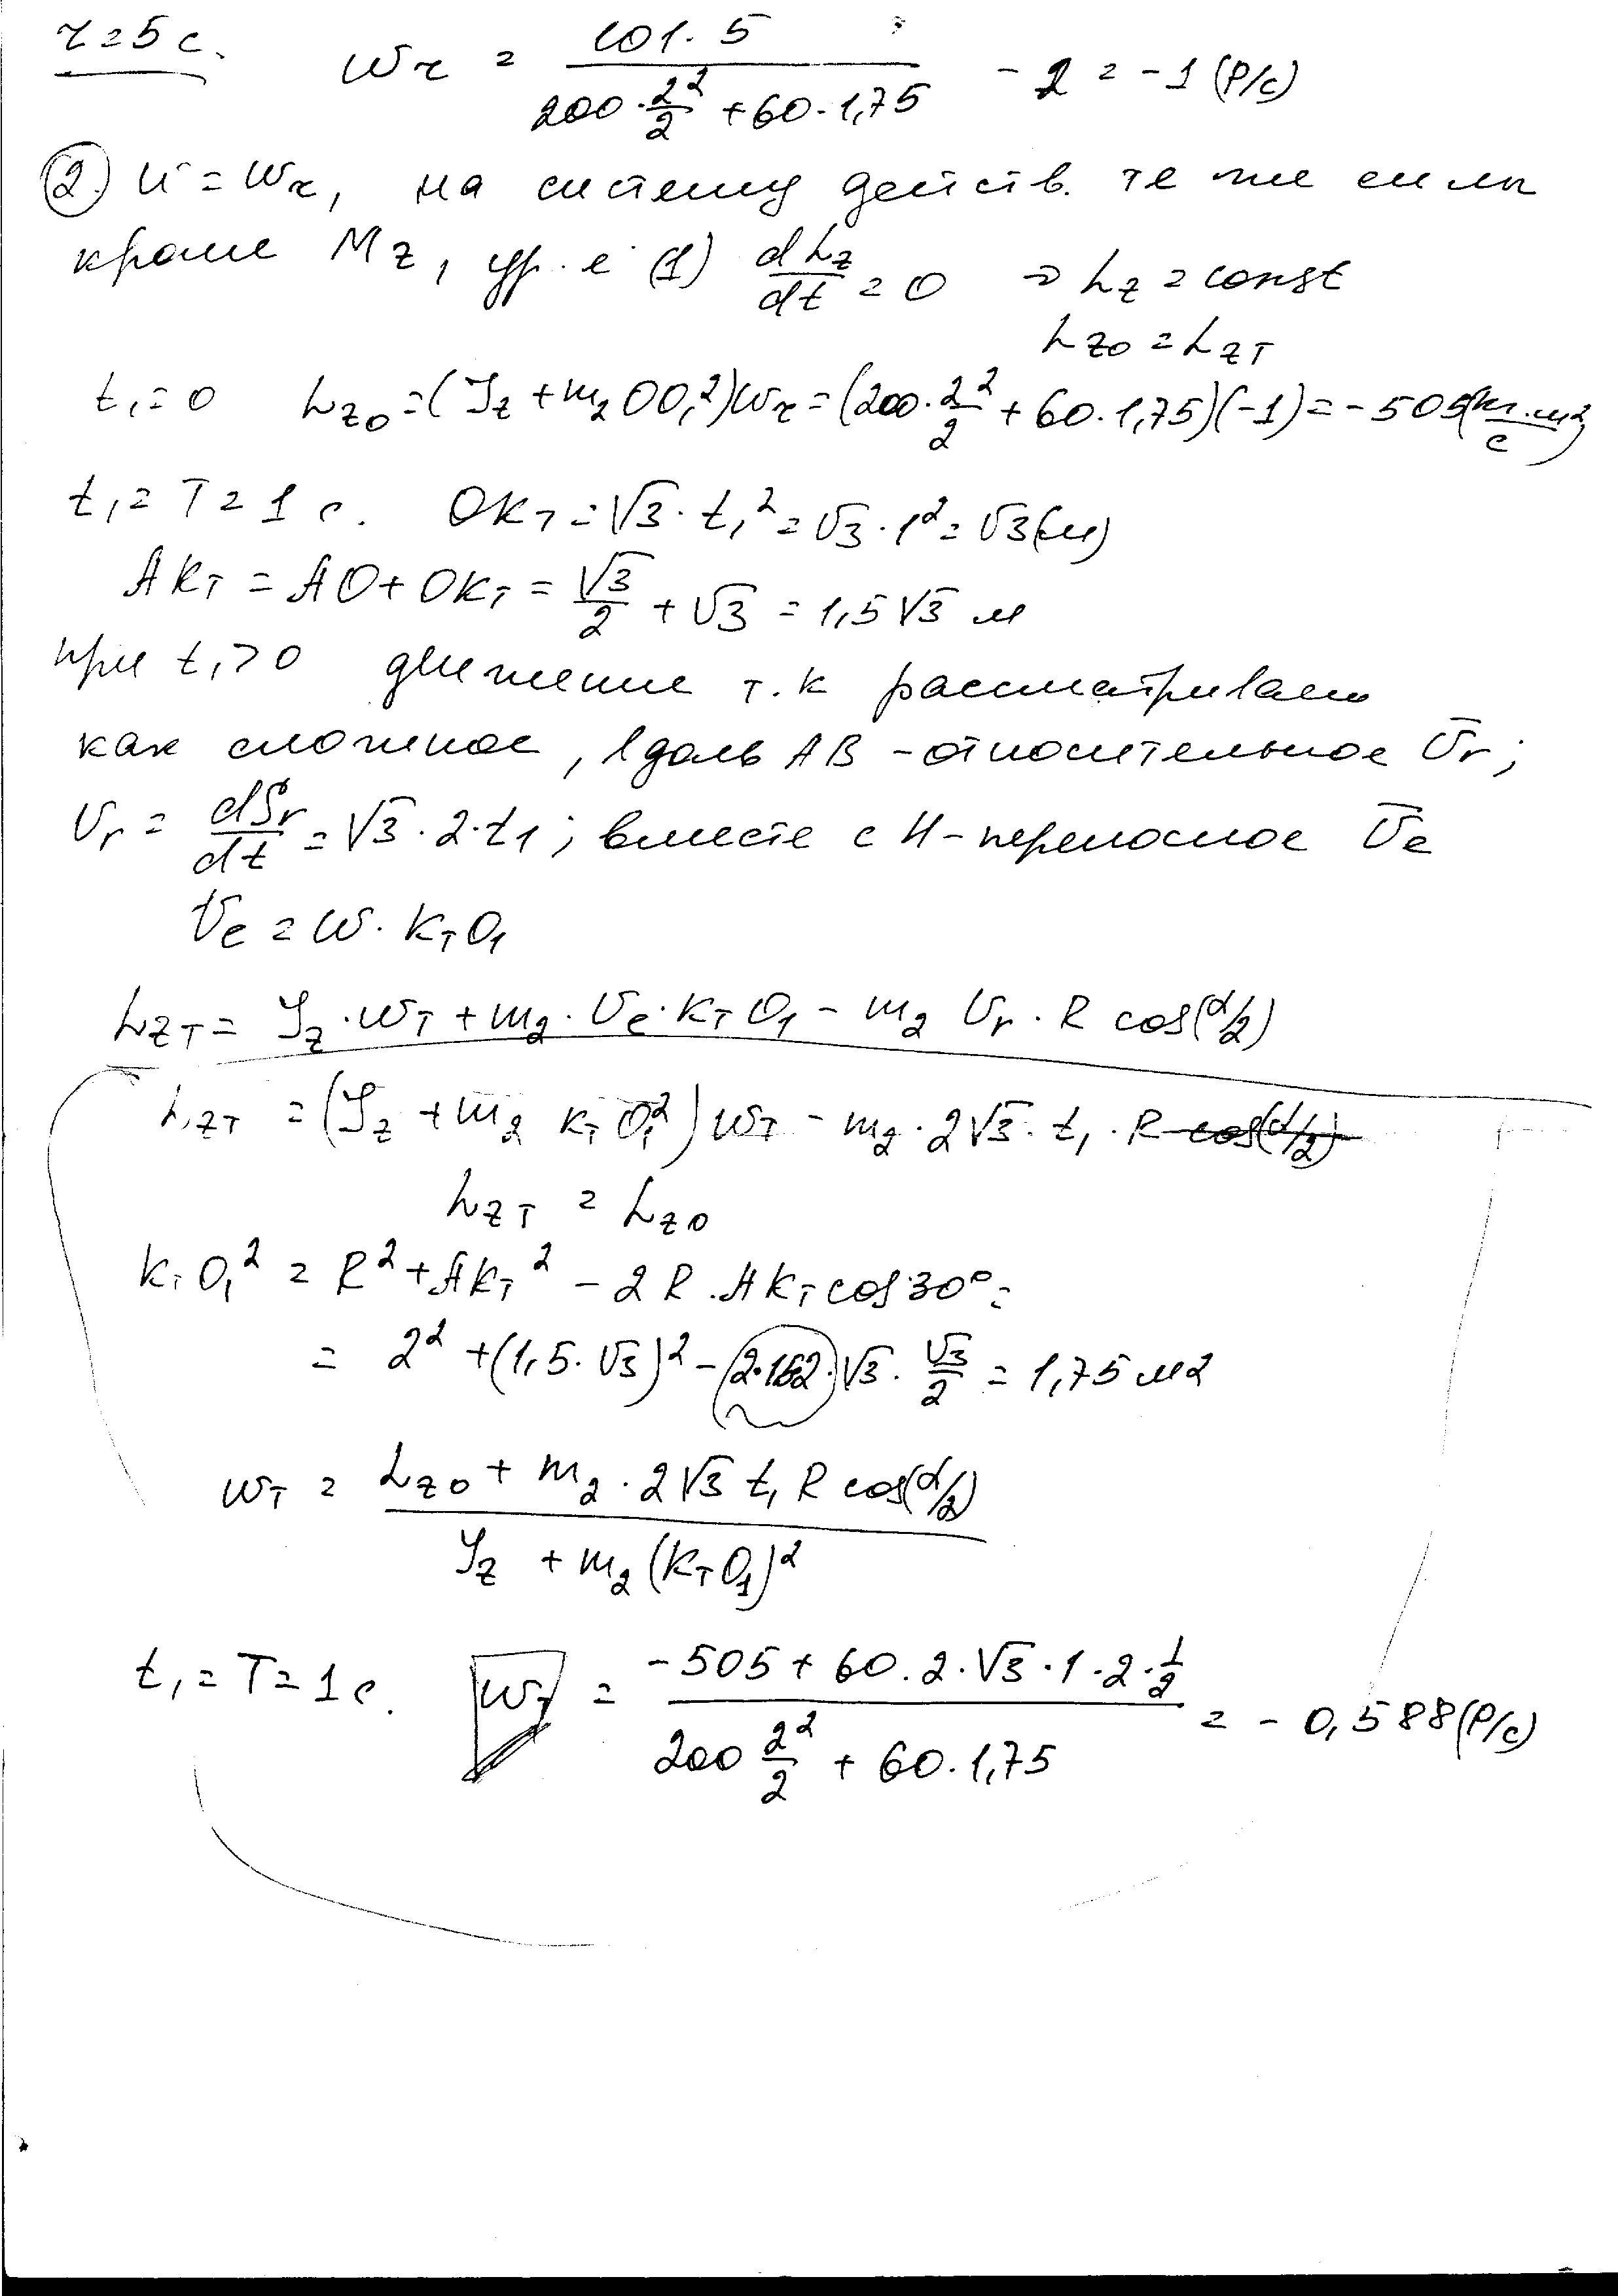 τ=5 с. ωτ = 101·5 / (200·2²/2 + 60·1,75) - 2 = -1 (Р/с)
2. И = ωτ, на систему действ. те же силы
кроме Mz, ур-е (1) dLz/dt = 0 ⇒ Lz = const
Lz0 = LzT
t₁=0 Lz0 = (Jz + m₂OO₁²)ωτ = (200·2²/2 + 60·1,75)(-1) = -505(кг·м²/с)
t₁ = T = 1 с. OKT = √3·t₁² = √3·1² = √3(м)
AKT = AO + OKT = √3/2 + √3 = 1,5√3 м
при t₁>0 движение т.К рассматриваем
как сложное, вдоль AB - относительное V̄r;
Vr = dSr/dt = √3·2·t1; вместе с И-переносное V̄e
Ve = ω·KTO₁
LzT = Jz·ωT + m₂·Ve·KTO₁ - m₂ Vr·R cos(α/2)
LzT = (Jz + m₂ KTO₁²)ωT - m₂·2√3·t₁·R cos(α/2)
LzT = Lz0
KTO₁² = R² + AKT² - 2R·AKT cos30° =
= 2² + (1,5·√3)² - 2·1,52·√3·√3/2 = 1,75 м2
ωT = (Lz0 + m₂·2√3 t₁ R cos(α/2)) / (Jz + m₂(KTO₁)²)
t₁ = T = 1 с. ωT = (-505 + 60·2·√3·1·2·1/2) / (200 2²/2 + 60·1,75) = -0,588(Р/с)